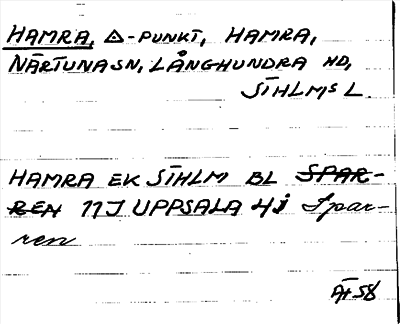 HAMRA, △-PUNKT, HAMRA,
NÄRTUNA SN, LÅNGHUNDRA HD,
STHLMS L.
HAMRA EK STHLM BL SPAR-
REN 11J UPPSALA 4j Spar-
ren
ÄT 58